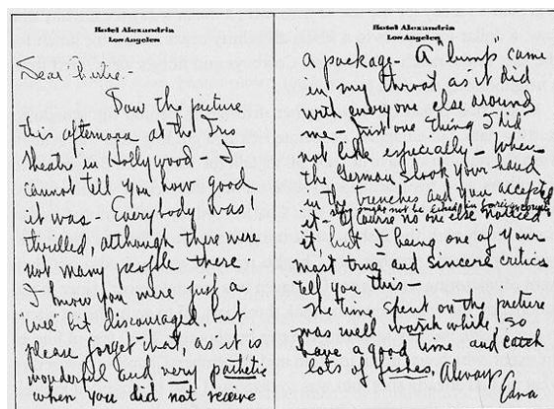 Hotel Alexandria
Los Angeles
Dear
Saw the picture
this afternoon at the Iris
Theatre in Hollywood - I
cannot tell you how good
it was - Everybody was
thrilled, although there were
not many people there.
I know you were just a
"wee" bit discouraged, but
please forget that, as it is
wonderful and very pathetic
when you did not receive
Hotel Alexandria
Los Angeles
a package - A "lump" came
in my throat as it did
with everyone else around
me - Just one thing I did
not like especially - When
the German shook your hand
in the trenches and you accepted
it - It might not be liked in foreign
Of course no one else noticed
it, but I being one of your
most true and sincere critics
tell you this -
The time spent on the picture
was well worth while, so
have a good time and catch
lots of fishes, Always
Edna